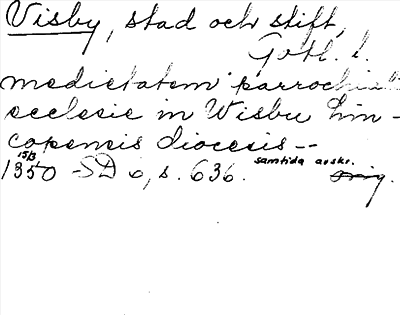 Visby, stad och stift,
Gotl. l.
medietatem parrochialis
ecclesie in Wisbu Lin-
copensis diocesis --
15/3 samtida avskr.
1350 SD 6, s. 636. orig.